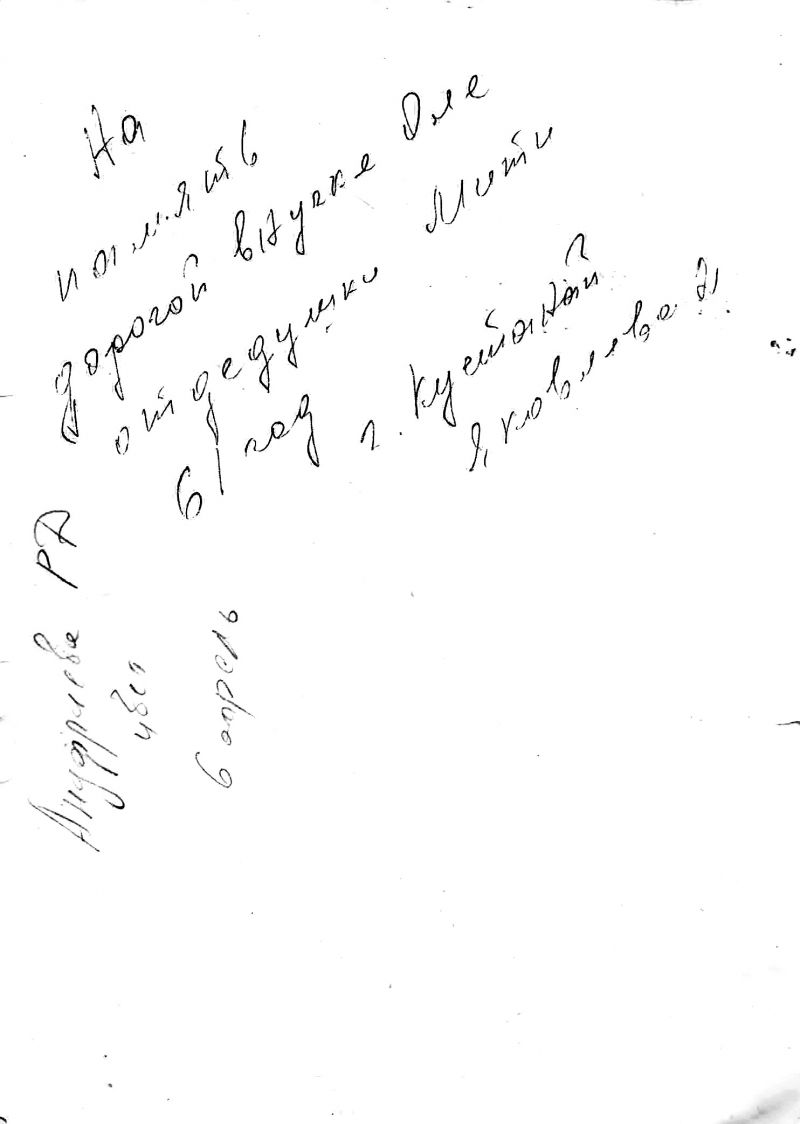 На
память
дорогой внучке Оле
от дедушки Мити
61 год г. Кустанай
Яковлева
Ануфриева РА
6 апрель